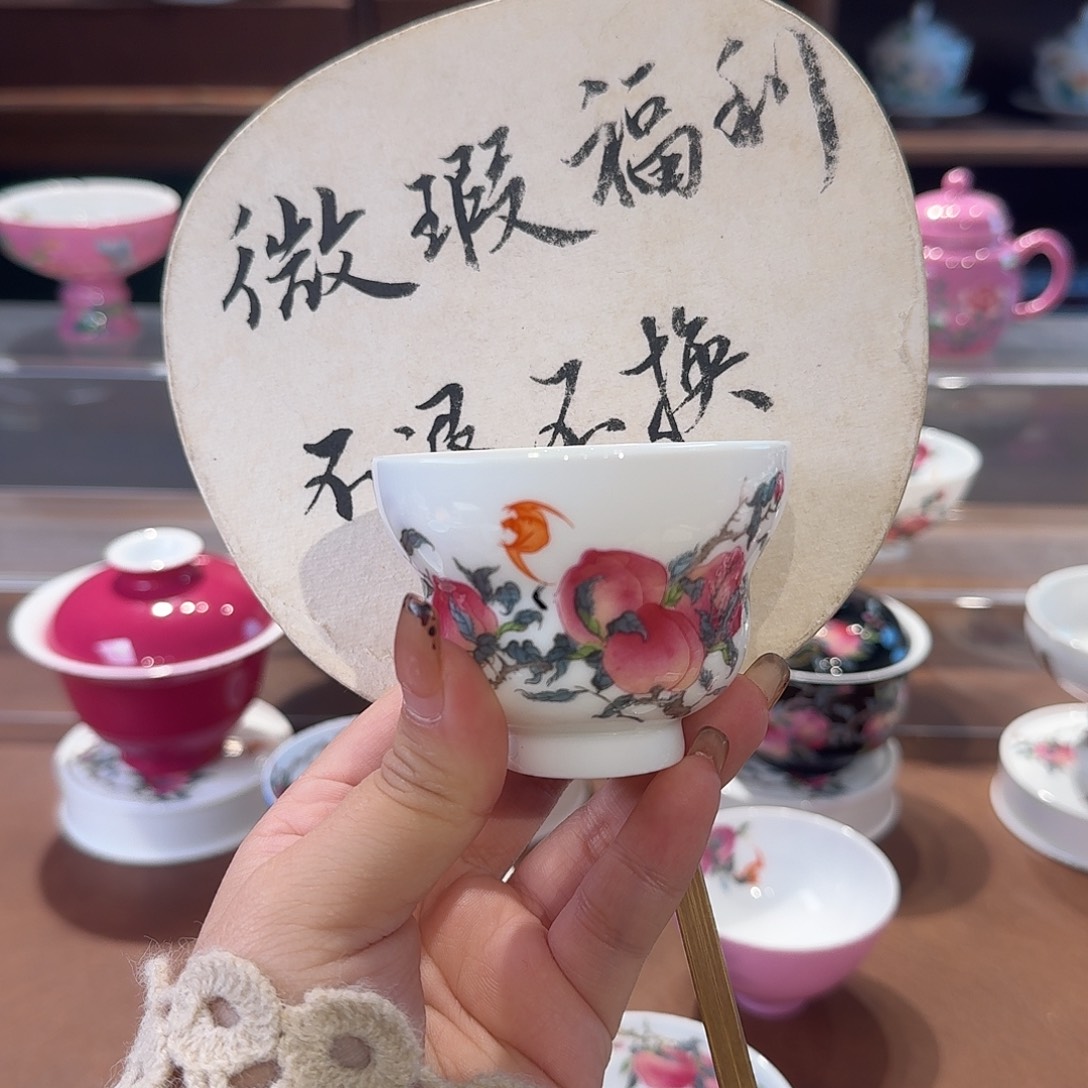 微瑕福利
不退不换